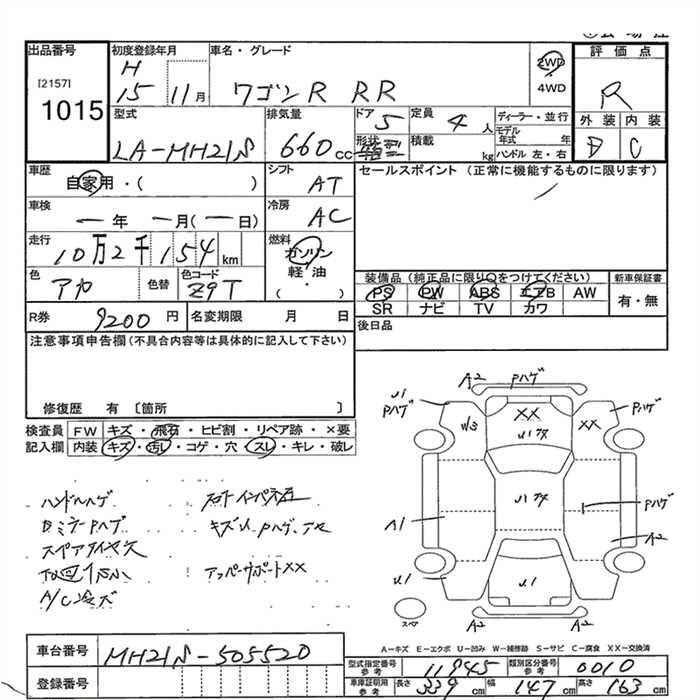 出品番号 初度登録年月 車名・グレード 評価点
[2157] H
1015 15 11月 ワゴンR RR 2WD ・ 4WD R
外装 内装
型式 排気量 ドア 定員 ディーラー・並行
LA-MH21S 660cc 5 4人 モデル年式 年 D C
形状 積載 kg ハンドル 左・右
車歴 シフト セールスポイント (正常に機能するものに限ります)
自家用・( ) AT
車検 冷房
ー年 ー月(ー日) AC
走行 燃料
10万2千154km ガソリン
軽・油
( )
色 色替 色コード 装備品(純正品に限り○をつけてください) 新車保証書
アカ Z9T PS PW ABS エアB AW 有・無
SR ナビ TV カワ
R券 9200円 名変期限 月 日 後日品
注意事項申告欄(不具合内容等は具体的に記入して下さい)
修復歴 有 〔箇所 〕
検査員 FW キズ・飛石・ヒビ割・リペア跡・×要
記入欄 内装 キズ・汚レ・コゲ・穴・スレ・キレ・破レ
ハンドルハゲ
Pハゲ
スペアタイヤ欠
A/C冷ズ
アッパーサポートXX
A2 Pハゲ
U1 Pハゲ
W3 XX XX Pハゲ
A1 Pハゲ
A2
U1 U1
A2 A2
スペア
A-キズ E-エクボ U-凹み W-補修跡 S-サビ C-腐食 XX-交換済
車台番号 MH21S-505520
登録番号
型式指定番号 参考 11945 類別区分番号 参考 0010
車庫証明用 参考 長さ 339cm 幅 147cm 高さ 163cm